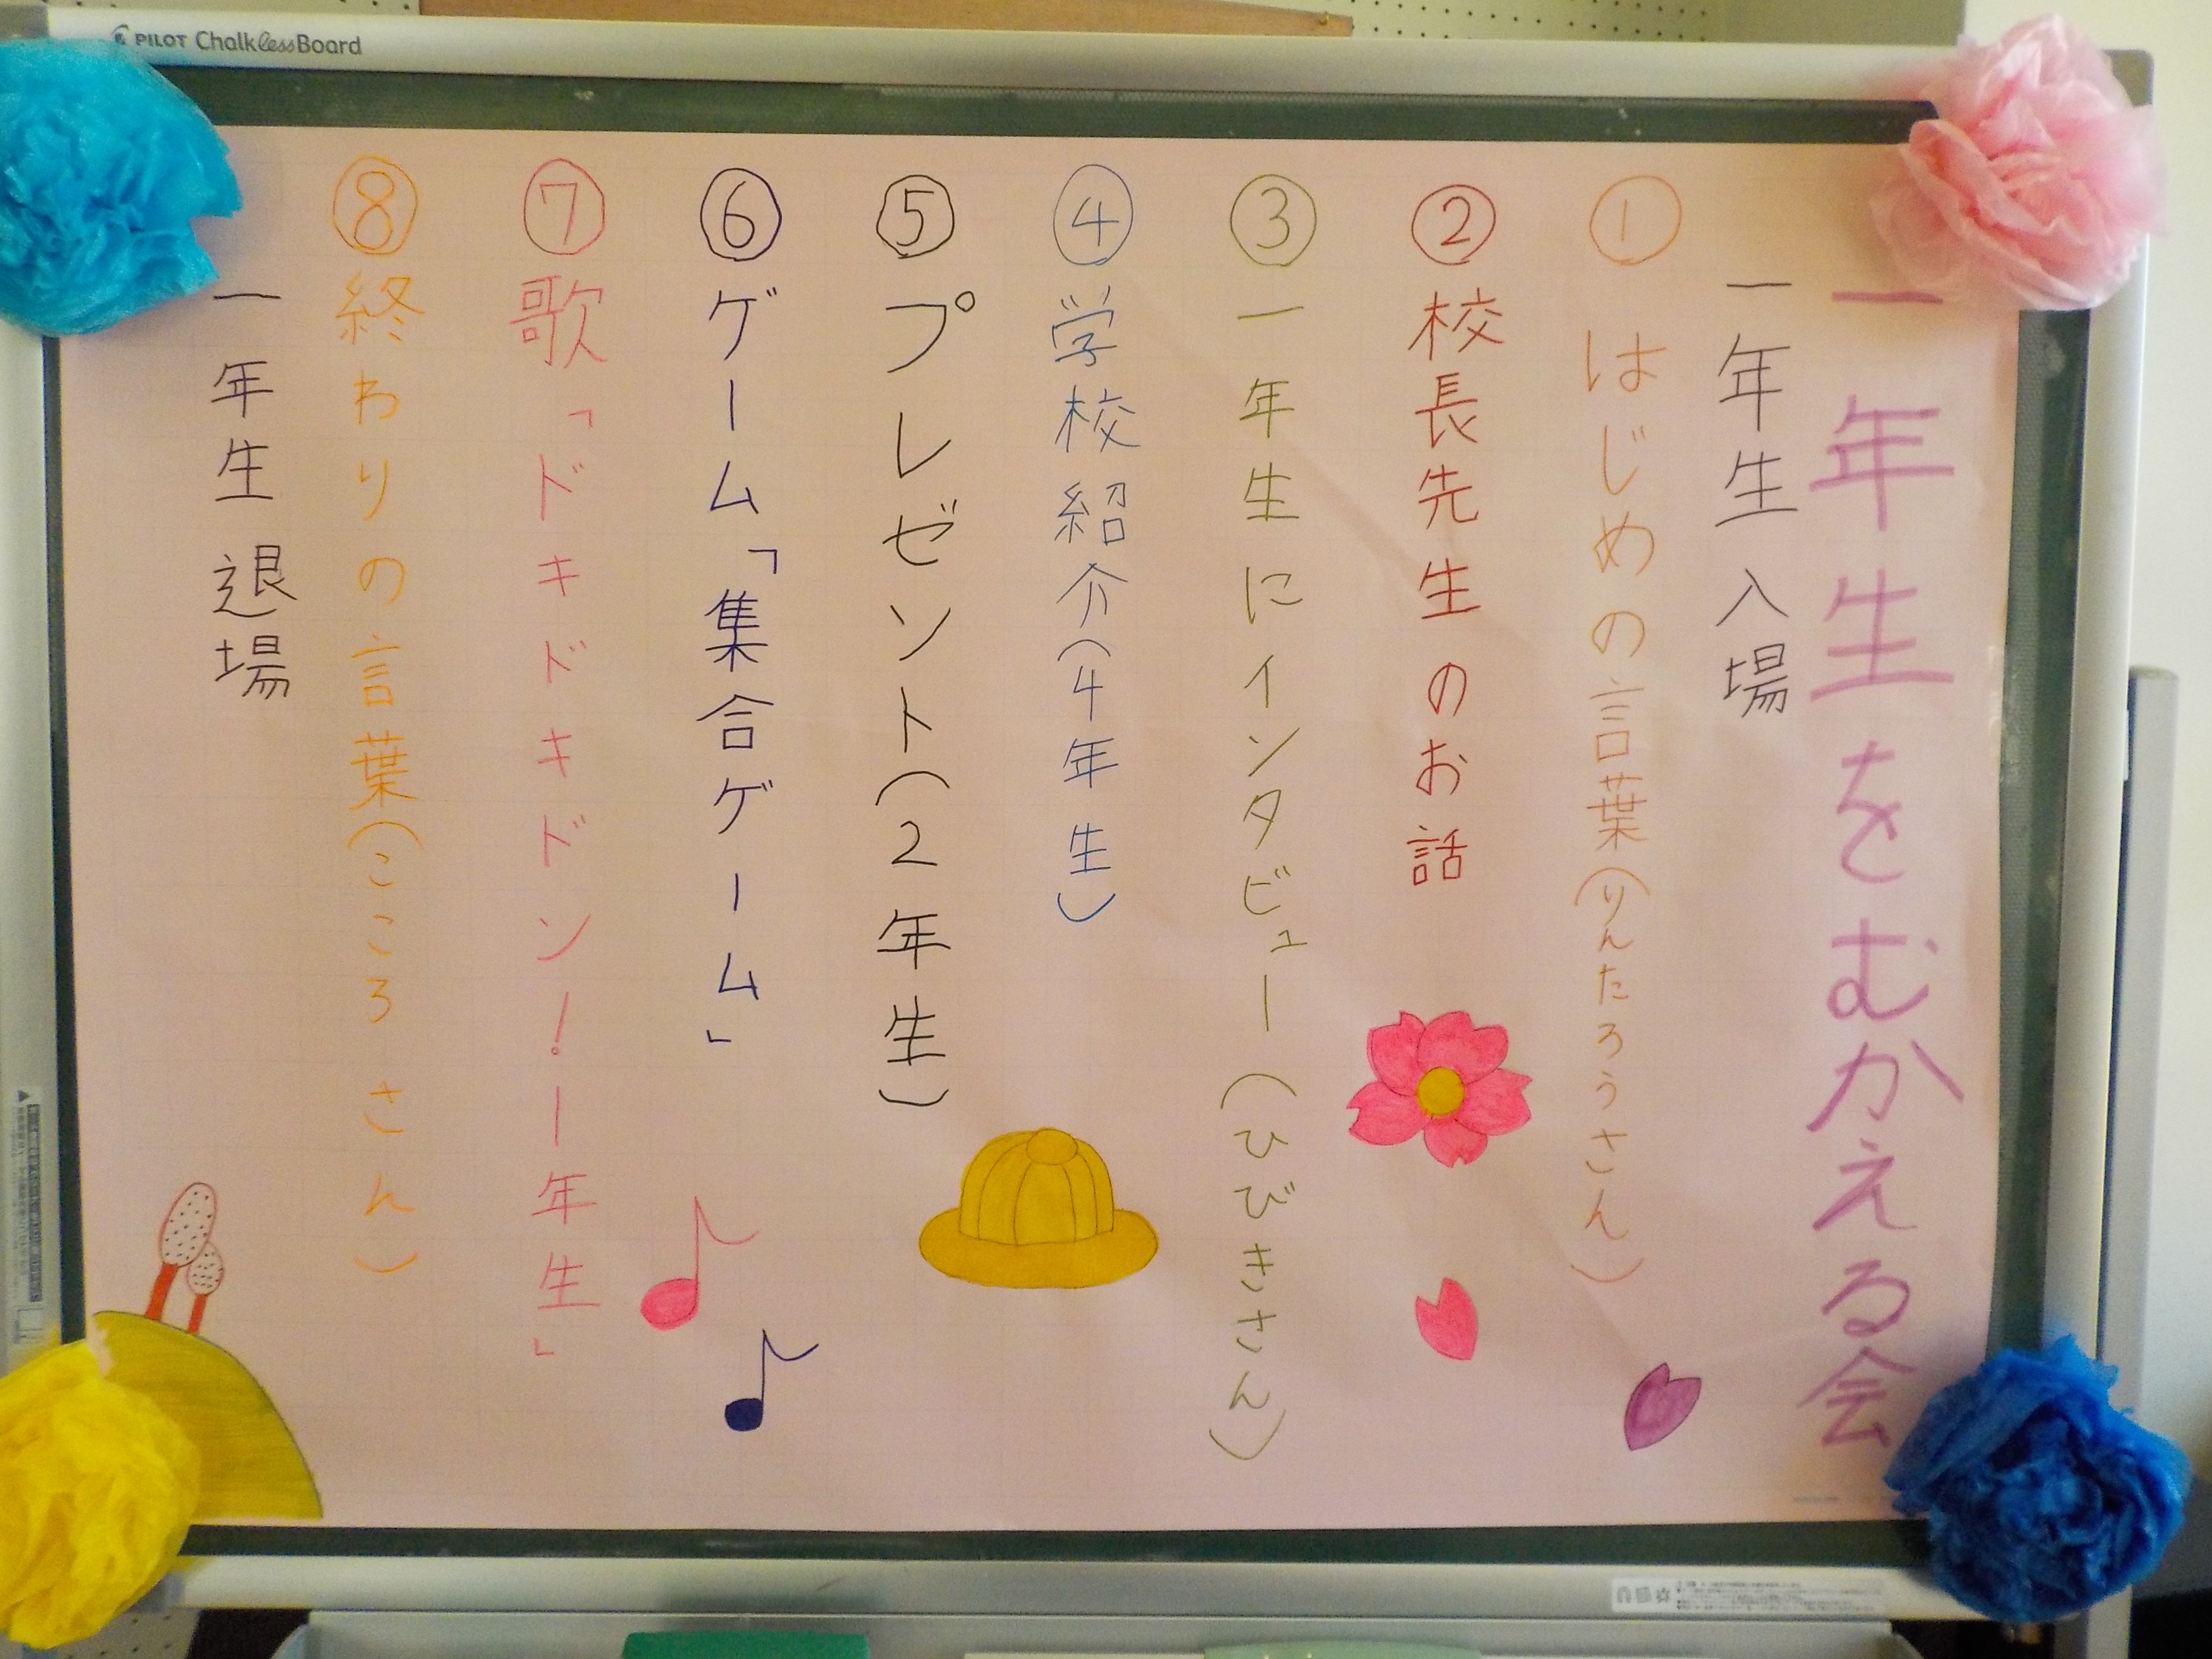 PILOT ChalklessBoard
一年生をむかえる会
一年生 入場
① はじめの言葉(りんたろうさん)
② 校長先生のお話
③ 一年生にインタビュー(ひびきさん)
④ 学校紹介(4年生)
⑤ プレゼント(2年生)
⑥ ゲーム「集合ゲーム」
⑦ 歌「ドキドキドン!一年生」
⑧ 終わりの言葉(こころさん)
一年生 退場